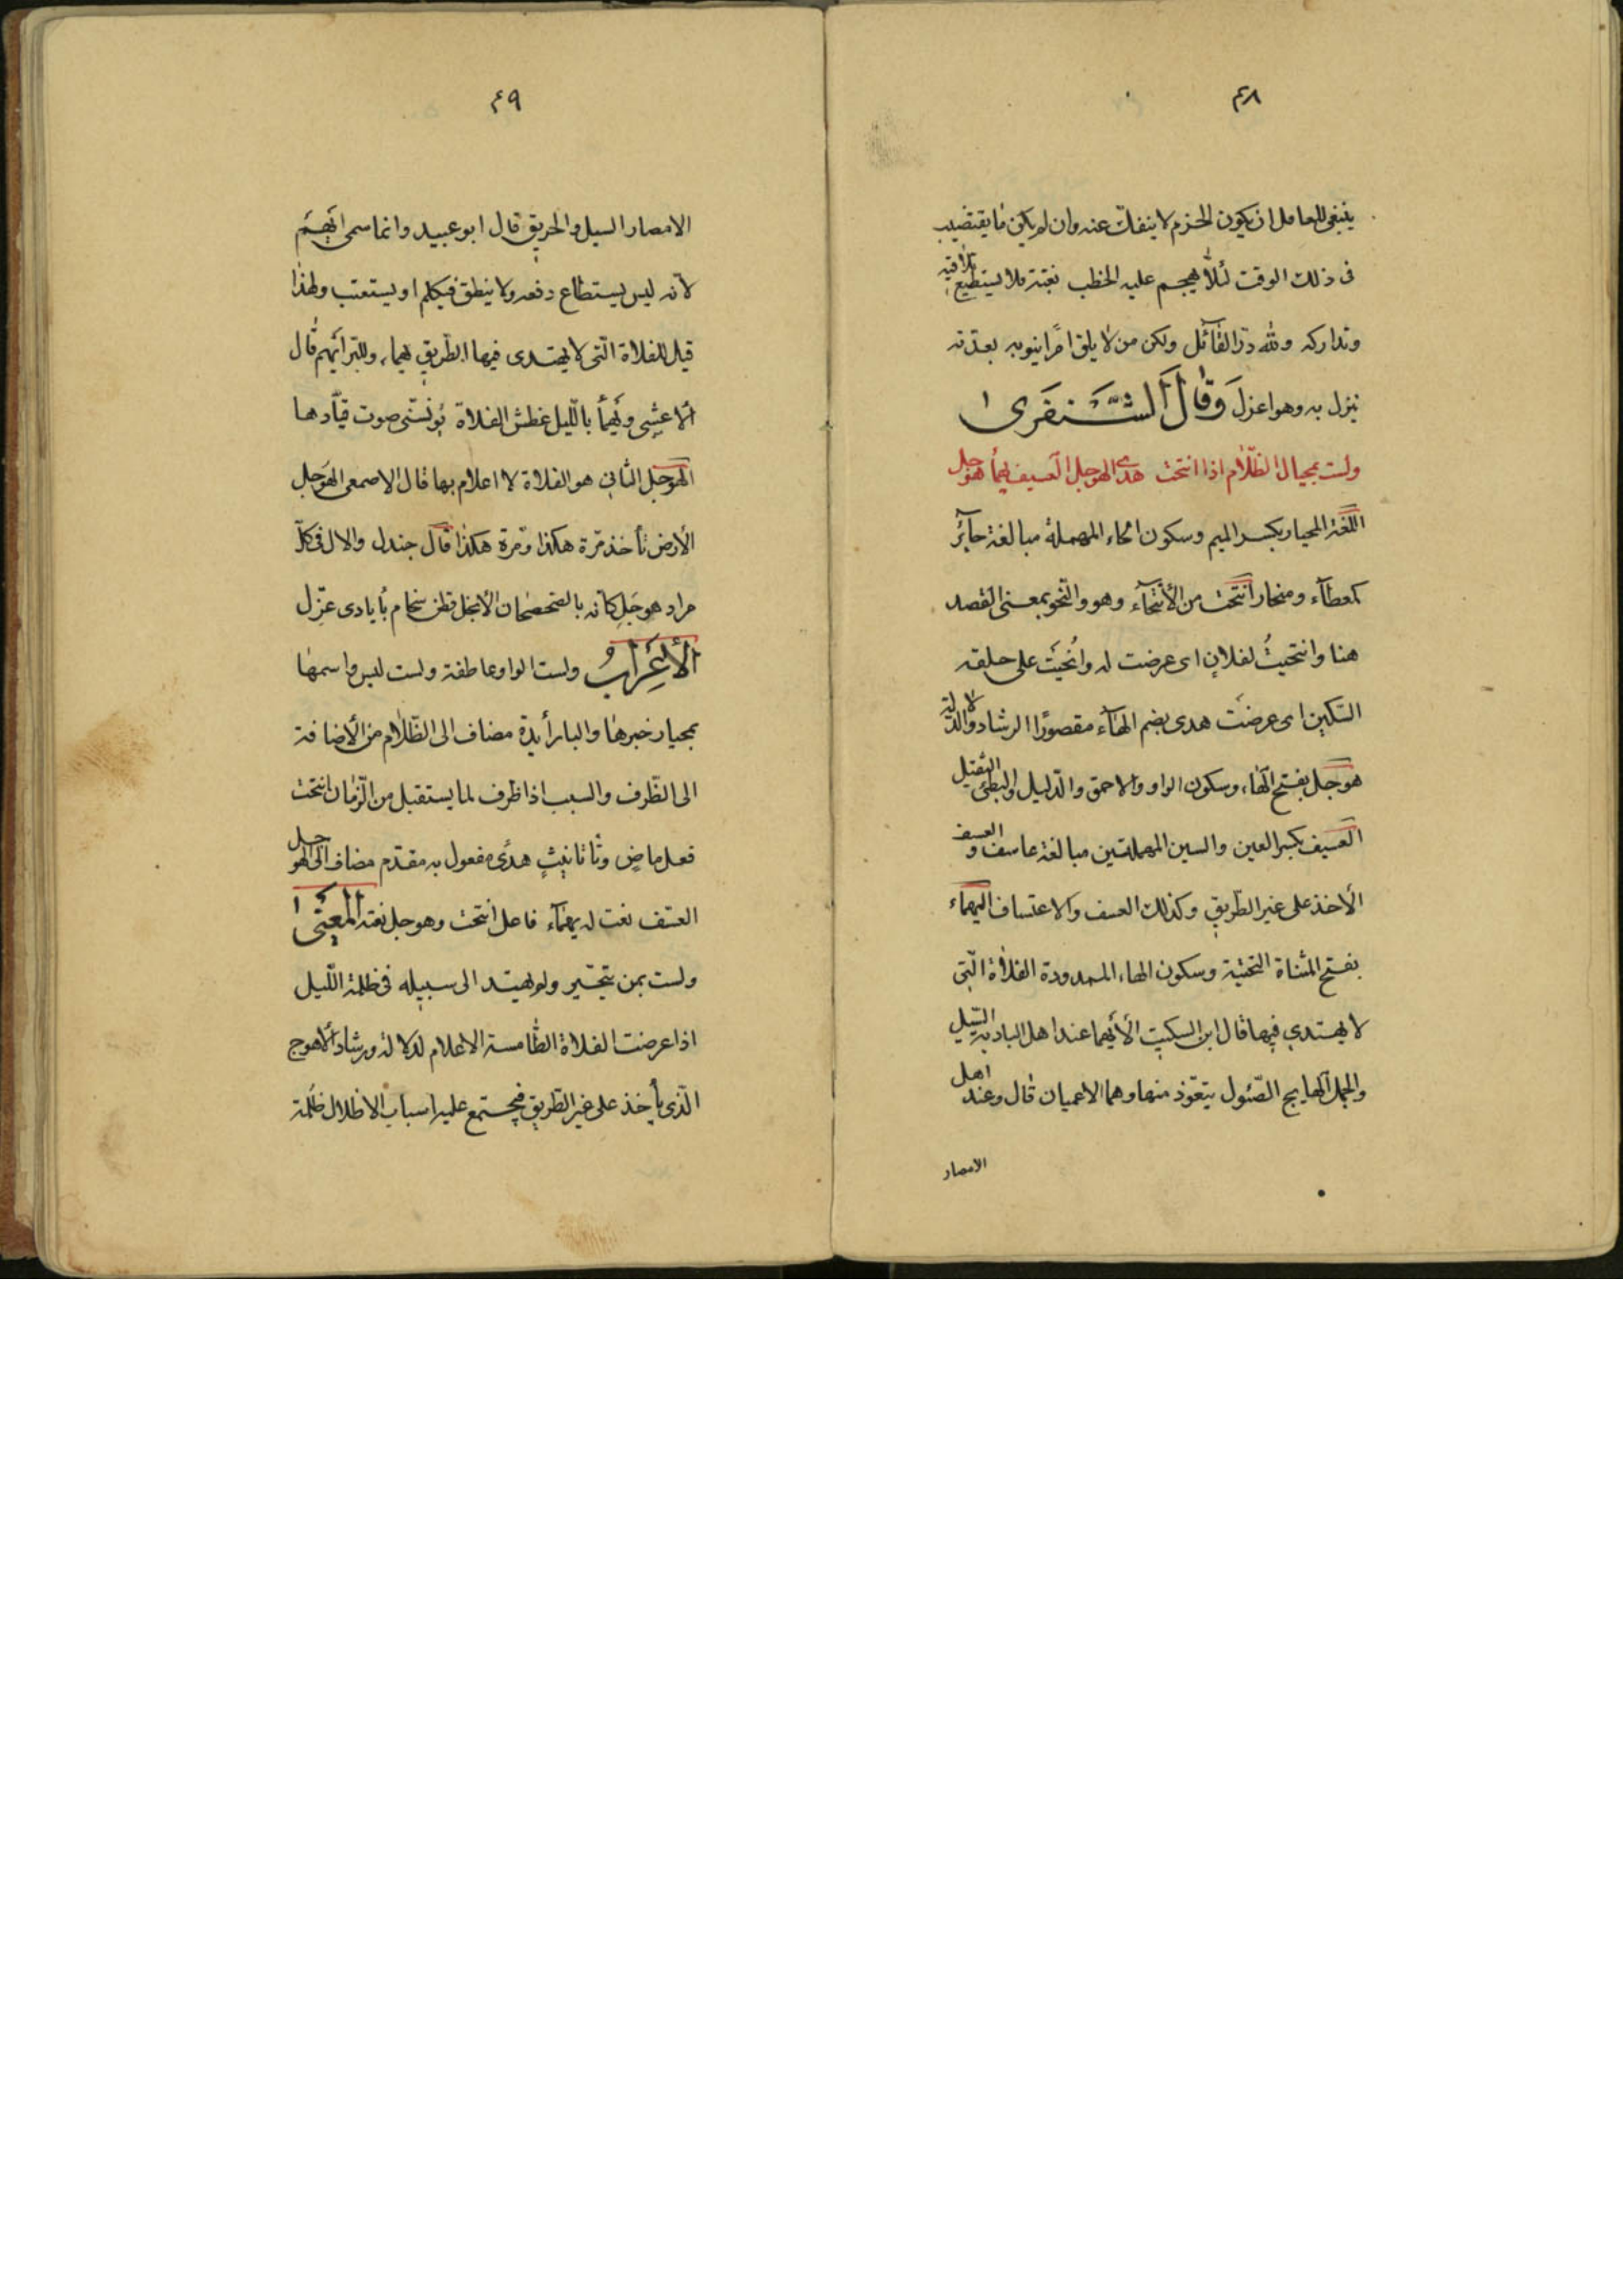 ٤٨
ينبغى للعاقل ان يكون الحزم لا ينفك عنه وان لم يكن ما يقتضيه
فى ذلك الوقت لئلا يهجم عليه الخطب بغتة فلا يستطيع تلافيه
وتداركه ولله در القائل ولكن من لا يلق امرا ينوبه بعدته
ينزل به وهو اعزل وقال الشنفرى
ولست بمحيار الظلام اذا انتحت هدى الهوجل العسيف يهماء هوجل
اللغة المحيار بكسر الميم وسكون الحاء المهملة مبالغة حائر
كمعطاء ومنحار انتحت من الأنتحاء وهو والنحو بمعنى القصد
هنا وانتحيت لفلان اى عرضت له وانحيت على حلقه
السكين اى عرضت هدى بضم الهاء مقصورا الرشاد والدلالة
هوجل بفتح الهاء وسكون الواو والاحمق والدليل والبطئ الثقيل
العسيف بكسر العين والسين المهملتين مبالغة عاسف والعسف
الأخذ على غير الطريق وكذلك العسف والاعتساف اليهماء
بفتح المثناة التحتية وسكون الهاء الممدودة الفلاة التى
لا يهتدي فيها قال ابن السكيت الأيهما عند اهل البادية السيل
والجمل الهايج الصئول يتعوذ منها وهما الاعميان قال وعند اهل
الامصار
٤٩
الامصار السيل والحريق قال ابو عبيد وانما سمى ايهم
لأنه ليس يستطاع دفعه ولا ينطق فيكلم او يستعتب ولهذا
قيل للفلاة التى لا يهتدى فيها الطريق يهماء وللبر ايهم قال
الاعشى ويهماء بالليل غطش الفلاة يؤنسنى صوت قيادها
الهوجل الثانى هو الفلاة لا اعلام بها قال الاصمعى الهوجل
الأرض تأخذ مرة هكذا ومرة هكذا قال جندل والال فى كل
مراد هوجل كانه بالصحصحان الأنجل قطن سخام بأيادى غزل
الأعراب ولست الواو عاطفة ولست ليس واسمها
بمحيار خبرها والبا زايدة مضاف الى الظلام من الأضافة
الى الظرف والسبب اذا ظرف لما يستقبل من الزمان انتحت
فعل ماض وتا تانيث هدى مفعول به مقدم مضاف الى الهوجل
العسف نعت له يهماء فاعل انتحت وهوجل نعته المعنى
ولست بمن يتحير ولم يهتد الى سبيله فى ظلمة الليل
اذا عرضت الفلاة الطامسة الاعلام لدلالة ورشاد الاهوج
الذى يأخذ على غير الطريق فيجتمع عليه اسباب الاظلال ظلمة